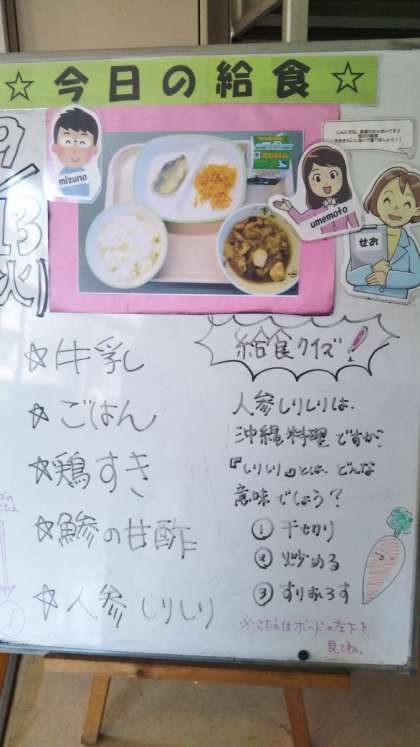 ☆今日の給食☆
9/13(火)
mizuno
umemoto
せお
☆牛乳
☆ごはん
☆鶏すき
☆鯵の甘酢
☆人参しりしり
給食クイズ!
人参しりしりは、
沖縄料理ですが、
『しりしり』とは、どんな
意味でしょう?
①千切り
②炒める
③すりおろす
※こたえはボードの左下を
見てね。